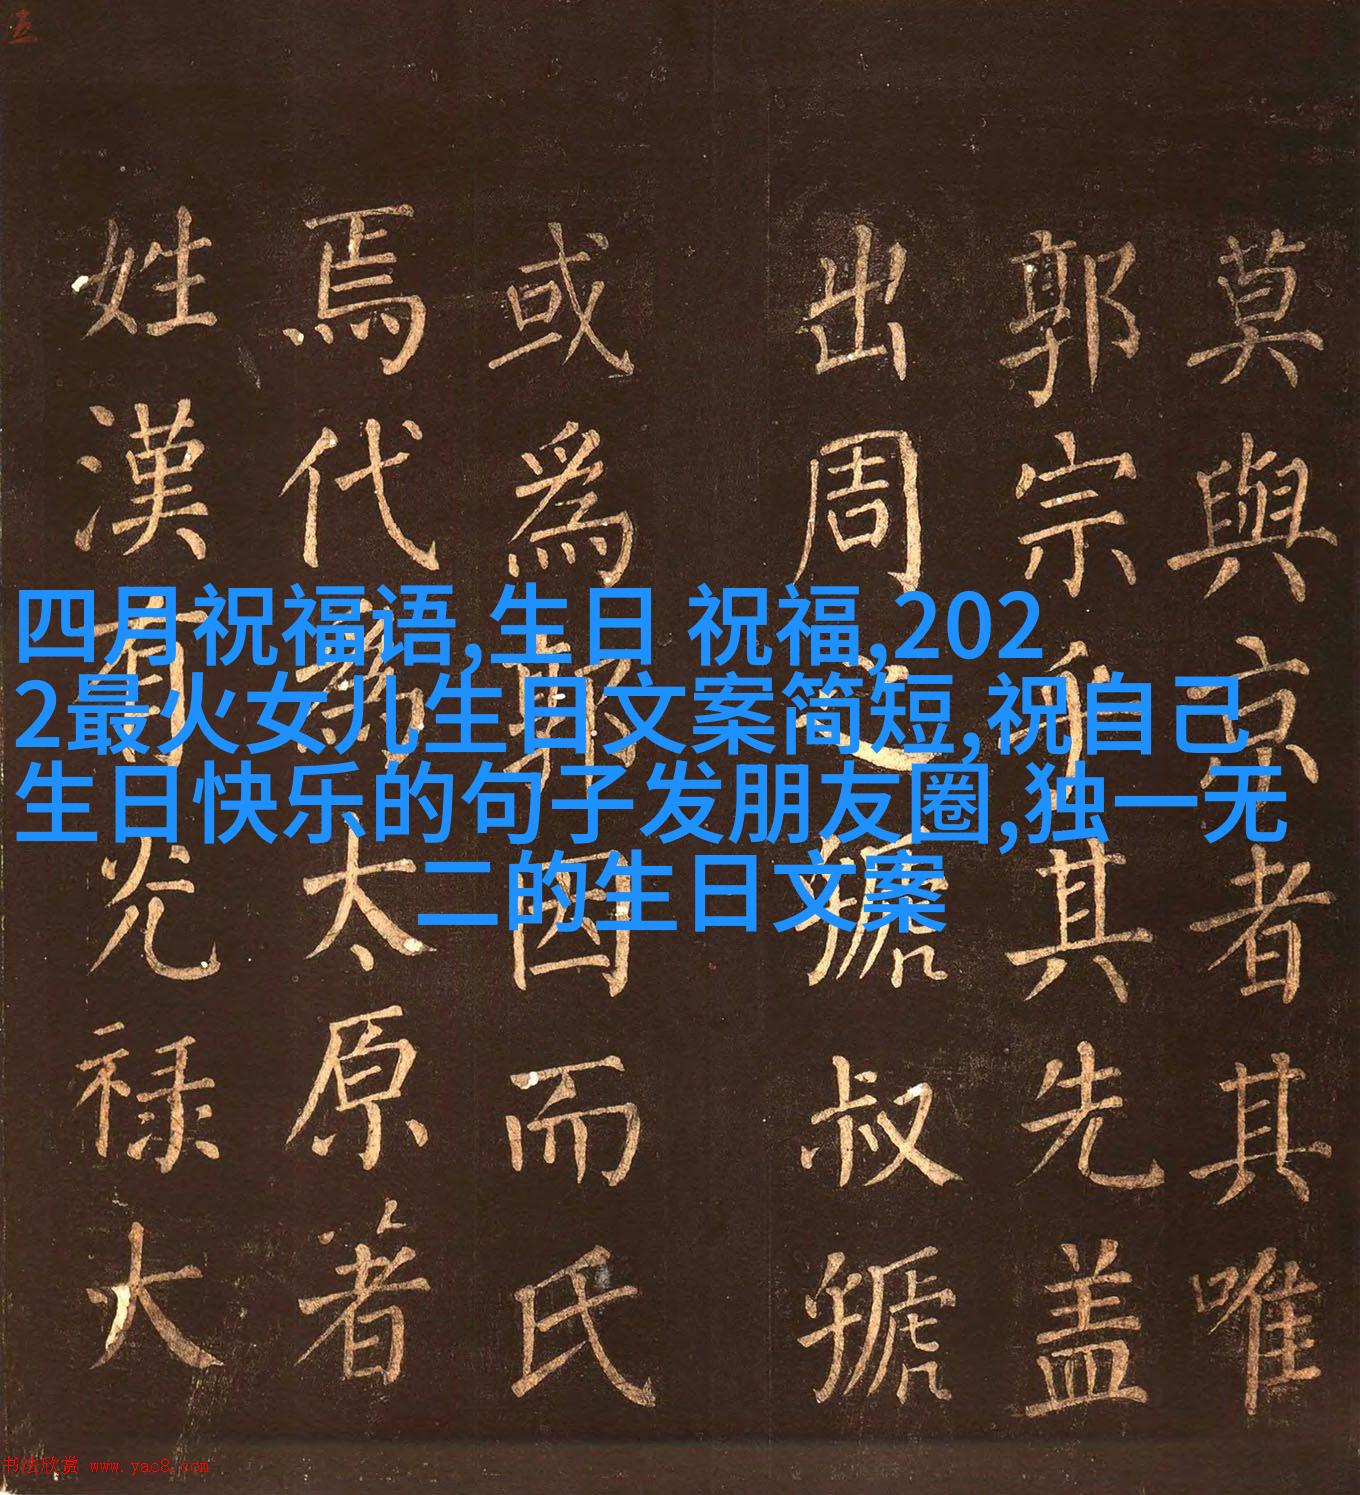 莫與京者其唯
郭宗乎其先盖
出周之虢叔虢
或為郭因而氏
焉代為太原著
姓漢有光禄大
四月祝福语,生日 祝福,202
2最火女儿生日文案简短,祝自己
生日快乐的句子发朋友圈,独一无
二的生日文案
书法欣赏 www.yac8.com